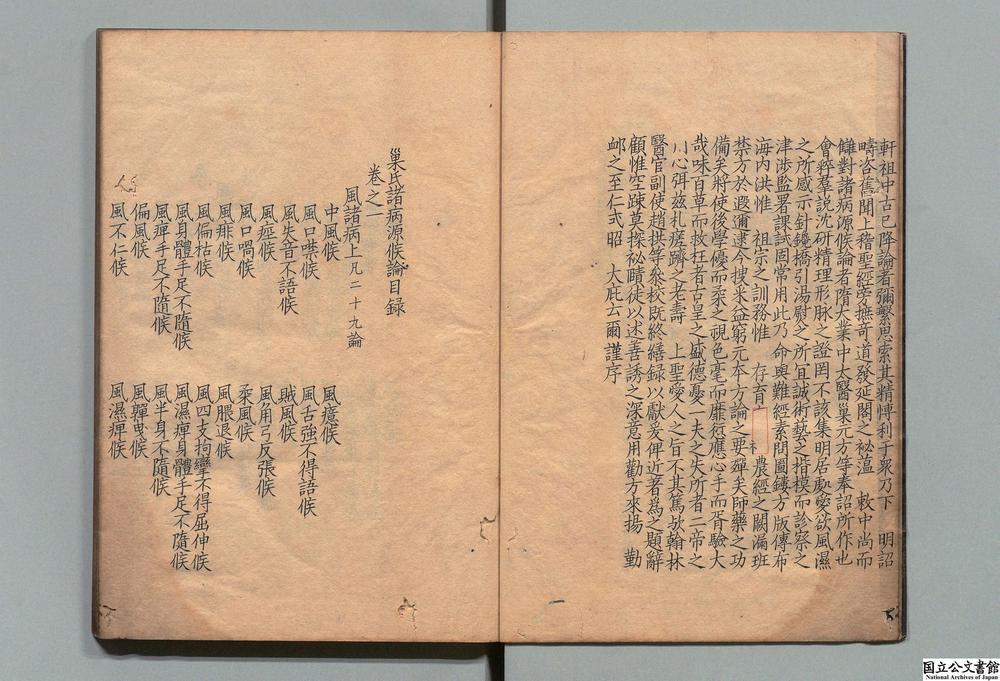 軒祖中古已降論者彌繁思索其精愽利于衆乃下　明詔
疇咨舊聞上稽聖經旁摭奇道發延閣之祕藴　敕中尚而
讎對諸病源候論者隋大業中太醫巢元方等奉詔所作也
會稡羣説沈研精理形脉之證罔不該集明居處愛欲風濕
之所感示針鑱撟引湯熨之所宜誠術藝之指模而診察之
津涉監署課試固常用此乃　命與難經素問圖鏤方版傳布
海内洪惟　祖宗之訓務惟　存育　農經之闕漏班
禁方於遐邇逮今搜采益窮元本方論之要殫矣師藥之功
備矣將使後學優而柔之視色毫而靡愆應心手而胥驗大
哉味百草而救枉者古皇之盛德憂一夫之失所者二帝之
心弭兹札瘥躋之老壽　上聖愛人之旨不其篤歟翰林
醫官副使趙拱等參校既終繕録以獻爰俾近著爲之題辭
顧惟空疎莫探祕賾徒以述善誘之深意用勸方來揚　勤
卹之至仁式昭　大庇云爾謹序
巢氏諸病源候論目録
卷之一
風諸病上凡二十九論
中風候　風癔候
風口噤候　風舌強不得語候
風失音不語候　賊風候
風痙候　風角弓反張候
風口喎候　柔風候
風痱候　風腲退候
風偏枯候　風四支拘攣不得屈伸候
風身體手足不隨候　風濕痹身體手足不隨候
風痹手足不隨候　風半身不隨候
偏風候　風嚲曳候
風不仁候　風濕痹候
国立公文書館
National Archives of Japan